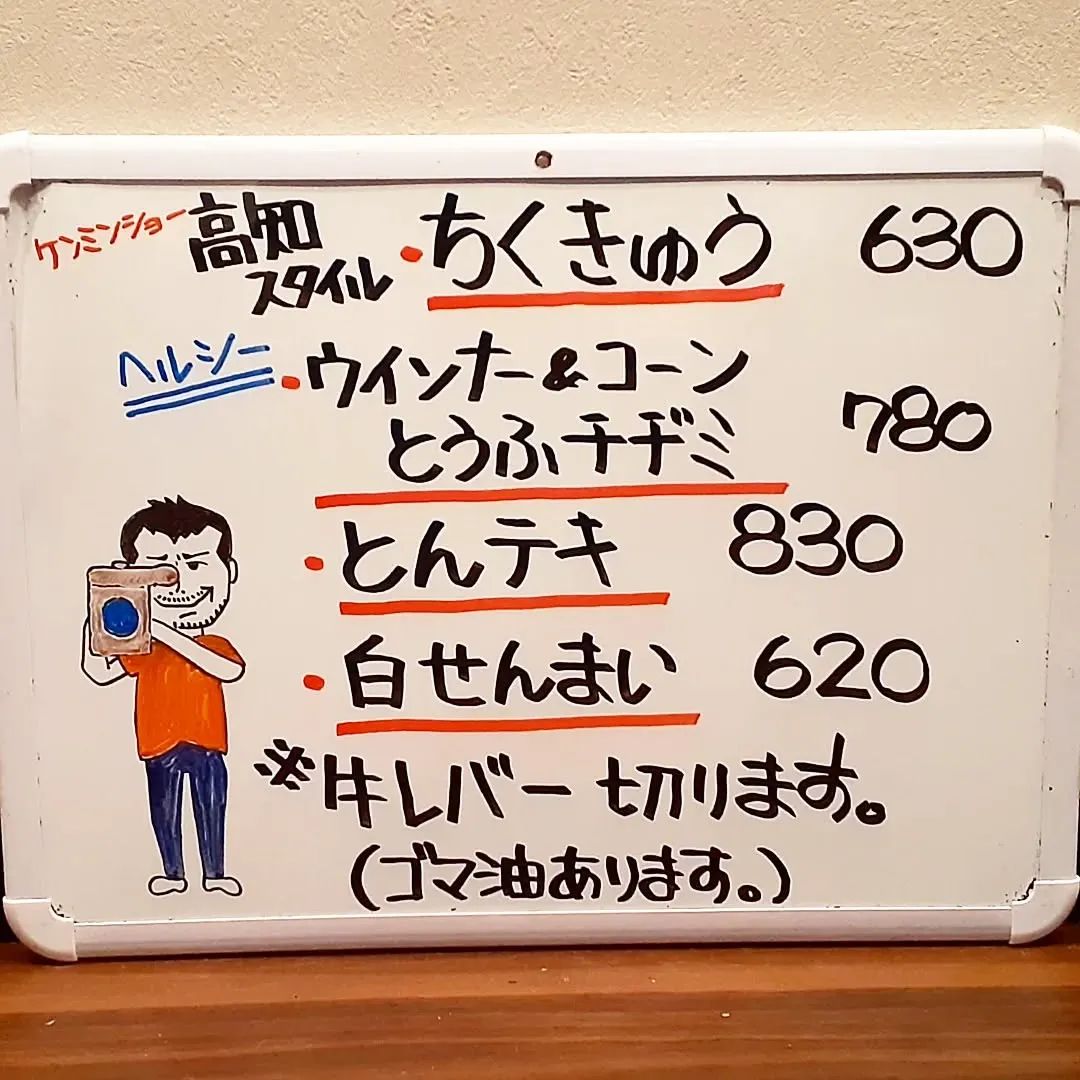 ケンミンショー 高知スタイル ・ちくきゅう 630
ヘルシー ・ウインナー&コーン
とうふチヂミ 780
・とんテキ 830
・白せんまい 620
※牛レバー切ります。
(ゴマ油あります。)